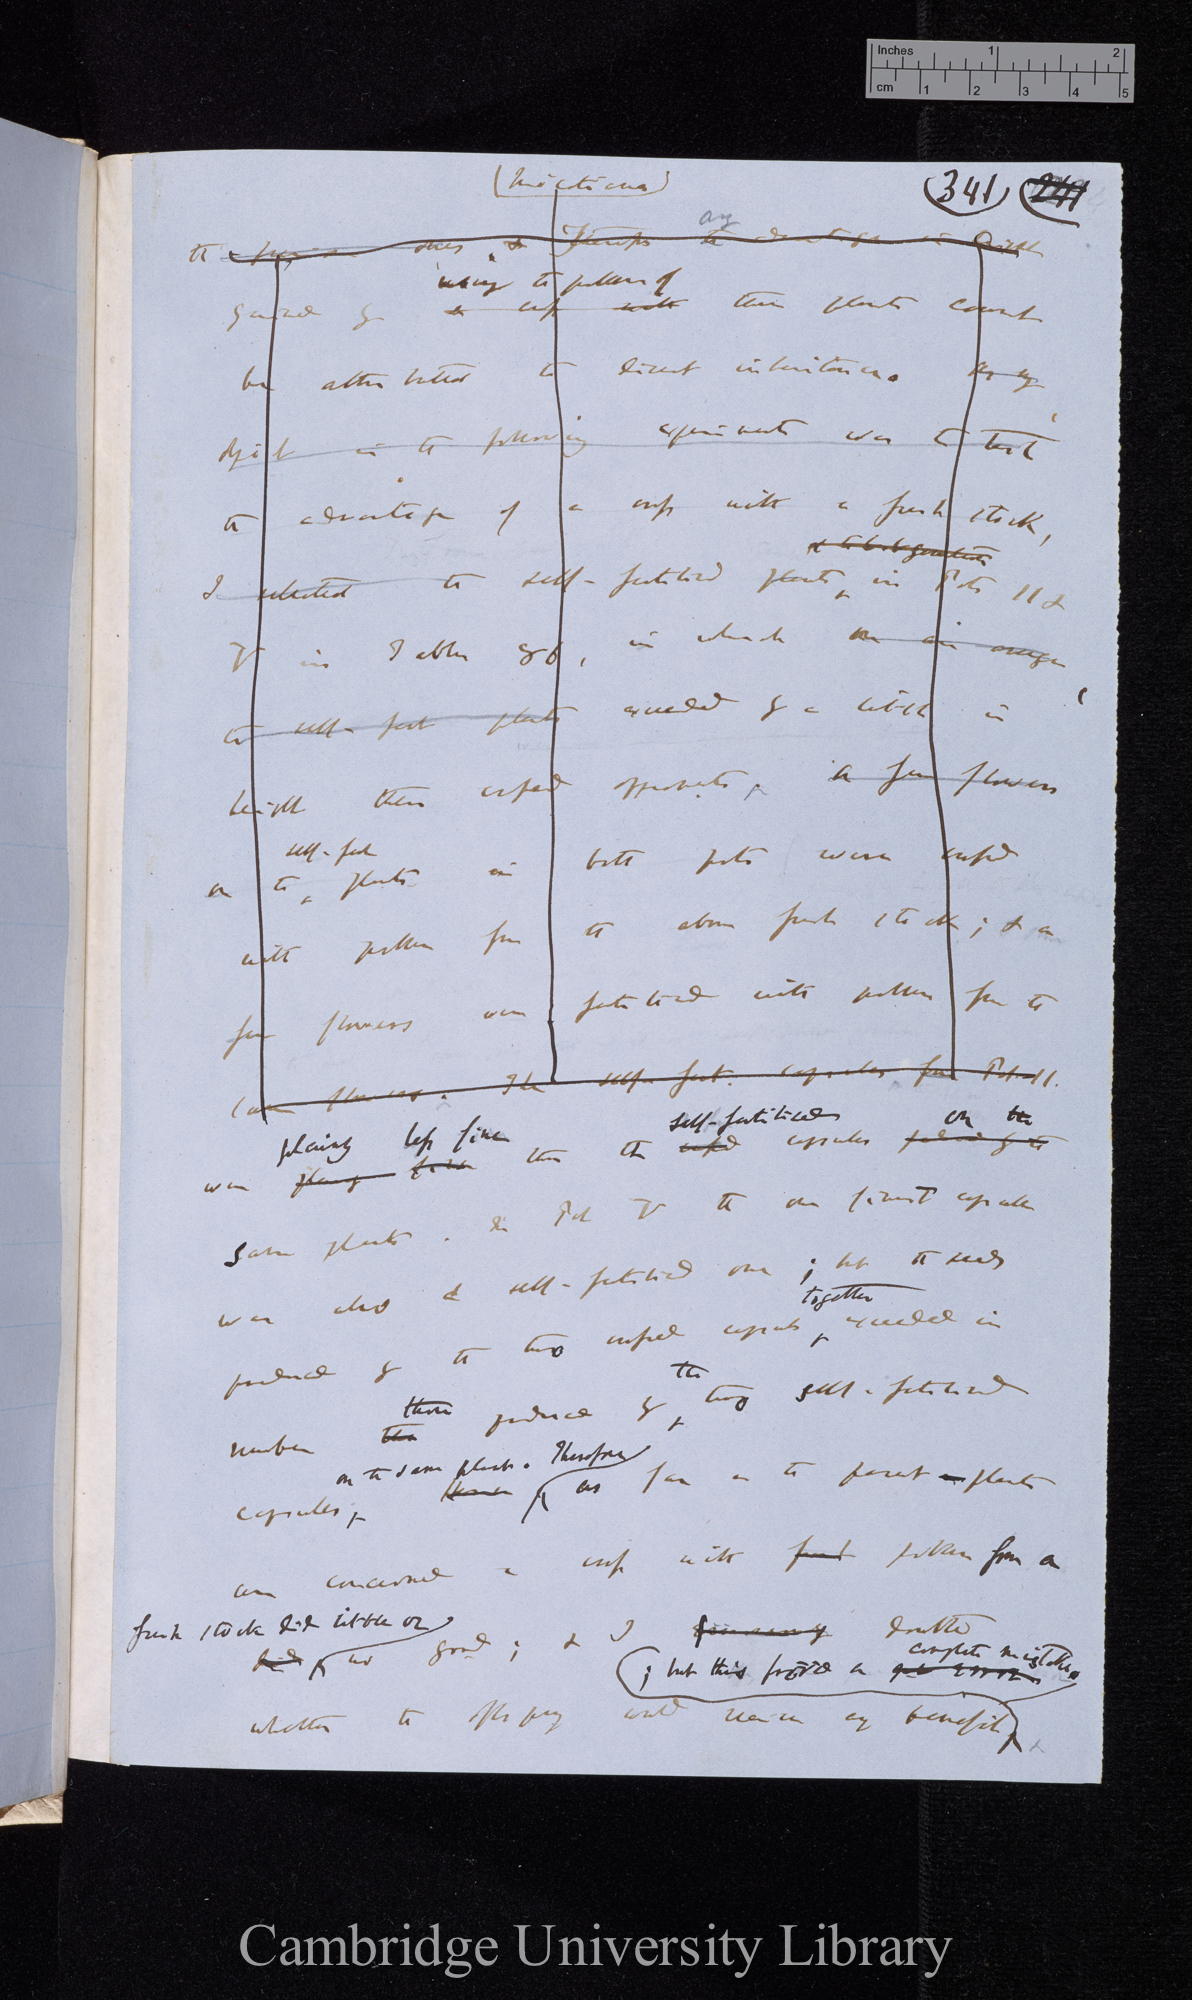 Inches 1 2
cm 1 2 3 4 5
(Nicotiana) 341 241
any
using the pollen of
these plants cannot
be attributed to direct inheritance. As my
object in the following experiments was to test
the advantage of a cross with a fresh stock,
I selected the self-fertilised plants in Pots II &
V in Table 86, in which on an average
the self-fert plants exceeded by a little in
height their crossed opponents. A few flowers
self-fert
on the plants in both pots were crossed
with pollen from the above fresh stock; & a
few flowers were fertilised with pollen from the
same flowers. The self-fert. capsules from Pot II.
plainly less fine self-fertilised on the
were than the crossed capsules
same plants. In Pot V the one finest capsule
was also a self-fertilised one; but the seeds
together
produced by the two crossed capsules exceeded in
the
those
number produced by two self-fertilised
on the same plants. Therefore
capsules, as far as the parent-plants
are concerned a cross with pollen from a
fresh stock did little or
did no good; & I doubted
; but this proved a complete mistake.
whether the offspring would receive any benefit
Cambridge University Library